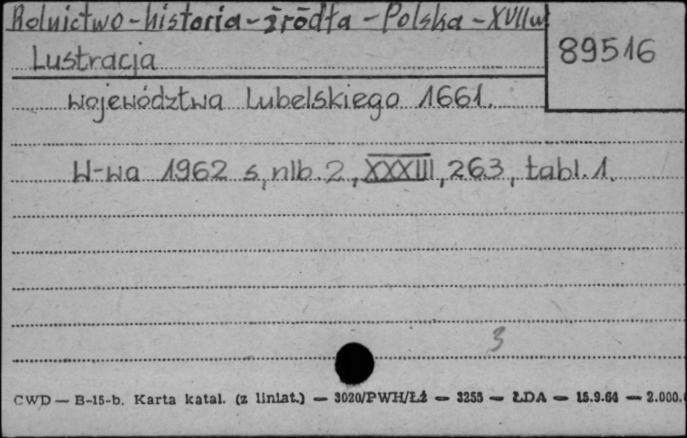 Rolnictwo-historia-źródła-Polska-XVIIw
89516
Lustracja
województwa Lubelskiego 1661.
W-wa 1962 s, nlb. 2, XXXIII, 263, tabl. 1.
3
CWD — B-15-b. Karta katal. (z liniat.) — 3020/PWH/Łź — 3255 — ŁDA — 15.9.64 — 2.000.